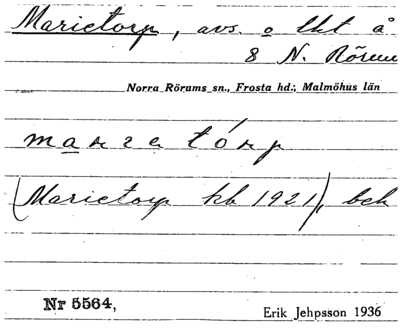 Marietorp, avs. o lht å
8 N. Rörum
Norra Rörams sn., Frosta hd.; Malmöhus län
marietórp
(Marietorp kb 1921), beb
Nr 5564,
Erik Jehpsson 1936